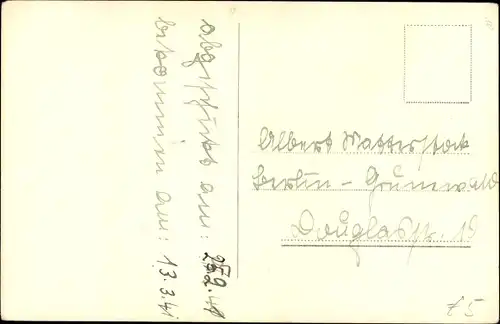 abgeschickt am: 25.2.41
bekommen am: 13.3.41
Albert Matterstock
Berlin - Grunewald
Douglasstr. 19
£5